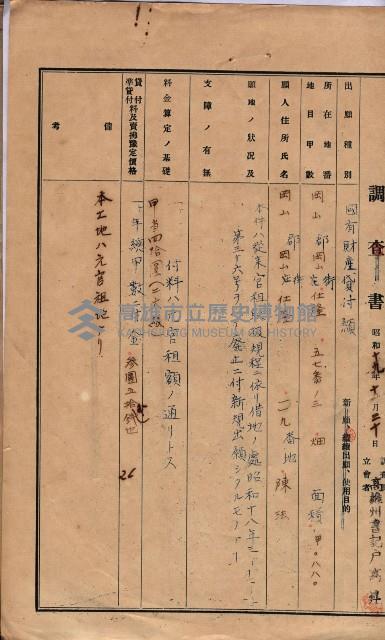 調査書
昭和十九年十月二十日
立會者
高雄州書記
出願種別
國有財產貸付願
新願、繼續出願、使用目的
所在地番
地目甲數
岡山郡岡山街仕隆 五七番ノ三 畑 面積
願人住所氏名
岡山郡 仕隆 二九番地 陳法
願地ノ狀況及
本件ハ從來官租 規程ニ依リ借地ノ處昭和十八年三
第三十六號ヲ 廢止ニ付新規出願シタルモノナリ
支障ノ有無
料金算定ノ基礎
付料ハ官租額ノ通リトス
甲當四拾圓
貸付
準貸付料及賣拂豫定價格
年額甲數 金 參圓五拾錢也
26
備考
本土地ハ元官租地ナリ
高雄市立歷史博物館
KAOHSIUNG MUSEUM OF HISTORY